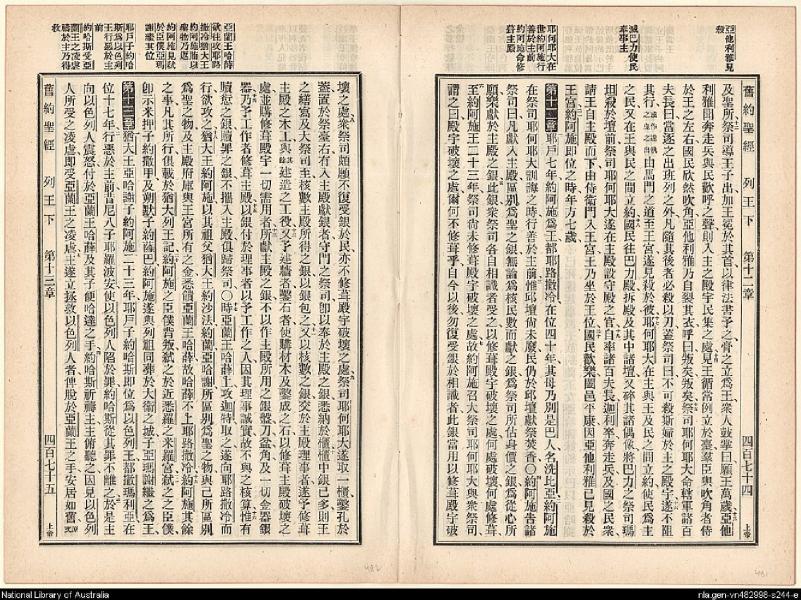 亞他利雅見殺
滅巴力使民奉事主
耶何耶大在世約阿施行善於主前
約阿施命修葺主殿
舊約聖經 列王下 第十二章 四百七十四 上帝
及聖所祭司導王子出加王冕於其首以律法書予之奉之立爲王衆人鼓掌曰願王萬歲亞他
利雅聞奔走兵與民歡呼之聲則入主之殿宇民集之處見王循常例立於臺羣臣與吹角者侍
於王之左右國民欣然吹角亞他利雅乃自裂其衣呼曰叛矣叛矣祭司耶何耶大命轄軍諸百
夫長曰當逐之出班列之外凡隨其後者必殺以刃蓋祭司曰不可殺斯婦於主之殿宇遂不阻
其行由馬門之道至王宮遂見殺於彼耶何耶大在主與王及民之間立約使民爲主
之民又在王與民之間立約國民往巴力殿拆殿及其中諸壇又碎其諸偶像將巴力之祭司瑪
坦殺於壇前祭司耶何耶大遂在主殿設守殿之官自率諸百夫長迦利宰奔走兵及國之民衆
請王自主殿而下由侍衛門入王宮王乃坐於王位國民歡樂闔邑平康因亞他利雅已見殺於
王宮約阿施卽位之時年方七歲
第十二章 耶戶七年約阿施爲王都耶路撒冷在位四十年其母乃別是巴人名洗比亞約阿施
在祭司耶何耶大訓誨之時行善於主前惟邱壇尙未廢民仍於邱壇獻祭焚香〇約阿施告諸
祭司曰凡獻入主殿區別爲聖之銀無論爲核民數而獻之銀爲祭司所估身價之銀爲從心所
願樂獻於主殿之銀此銀衆祭司各自相識者受之以修葺殿宇破壞之處何處破壞何處修葺
至約阿施王二十三年祭司尙未修葺殿宇破壞之處故約阿施召大祭司耶何耶大與衆祭司
謂之曰殿宇破壞之處爾何不修葺乎自今以後勿復受銀於相識者此銀當用以修葺殿宇破
亞蘭王哈薛欲往攻耶路撒冷猶大王約阿施以聖物乃退
約阿施見弒於臣僕亞瑪謝繼其位
耶戶子約哈斯爲以色列王行惡於主前
約哈斯受亞蘭王之凌虐禱於主乃得救
壞之處衆祭司雖願不復受銀於民亦不修葺殿宇破壞之處祭司耶何耶大遂取一櫃鑿孔於
蓋置於祭臺右有入主殿獻銀者守門之祭司卽以奉於主殿之銀悉納於櫃櫃中銀已多則王
之繕寫及大祭司至核數主殿所得之銀以銀包之又以核數之銀交於主殿理事者遂予修葺
主殿之木工與建造之工役又予建牆者鑿石者使購材木及鑿成之石以修葺主殿破壞之
處並購修葺殿宇一切需用者所獻主殿之銀不以作主殿所用之銀盤刀盆角及一切金器銀
器乃予工作者修葺主殿以銀付於理事者以予工作之人因其理事誠實故不與之核算惟有
贖愆之銀贖罪之銀不攜入主殿俱歸祭司〇時亞蘭王哈薛上攻迦特取之遂向耶路撒冷而
行欲攻之猶大王約阿施以其祖父猶大王約沙法約蘭亞哈謝所區別爲聖之物與己所區別
爲聖之物及主殿府庫與王宮所有之金悉餽亞蘭王哈薛故哈薛不上耶路撒冷約阿施其餘
之事凡其所行俱載於猶大列王記約阿施之臣僕背叛弒之於近悉羅之米羅宮弒之之臣僕
卽示米押子約撒甲及朔默子約薩巴約阿施遂與列祖同葬於大衞之城子亞瑪謝繼之爲王
第十三章 猶大王亞哈謝子約阿施二十三年耶戶子約哈斯卽位爲以色列王都撒瑪利亞在
位十七年行惡於主前尼八子耶羅波安使以色列人陷於罪約哈斯從其罪不離之於是主
向以色列人震怒付於亞蘭王哈薛及其子便哈達之手約哈斯祈禱主主俯聽之因見以色列
人所受之凌虐卽受亞蘭王之凌虐主遂立拯救以色列人者俾脫於亞蘭王之手安居如舊
舊約聖經 列王下 第十三章 四百七十五 上帝
National Library of Australia
nla.gen-vn482998-s244-e